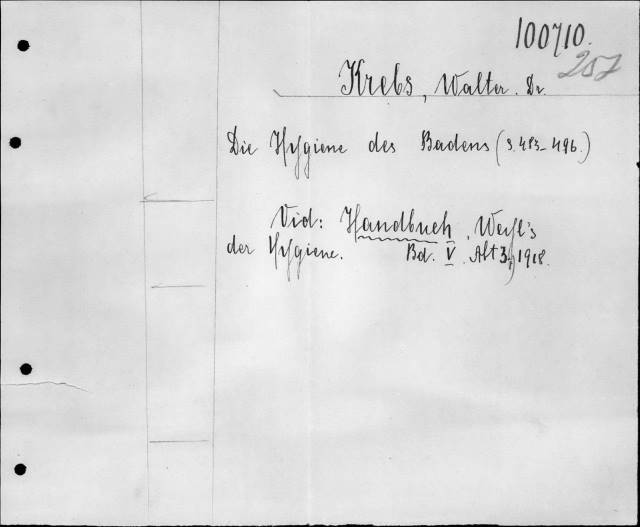 100710.
257
Krebs, Walter. Dr.
Die Hygiene des Badens (S. 483-496.)
Vid: Handbuch, Weyl's
der Hygiene. Bd. V. Abt 3, 1918.